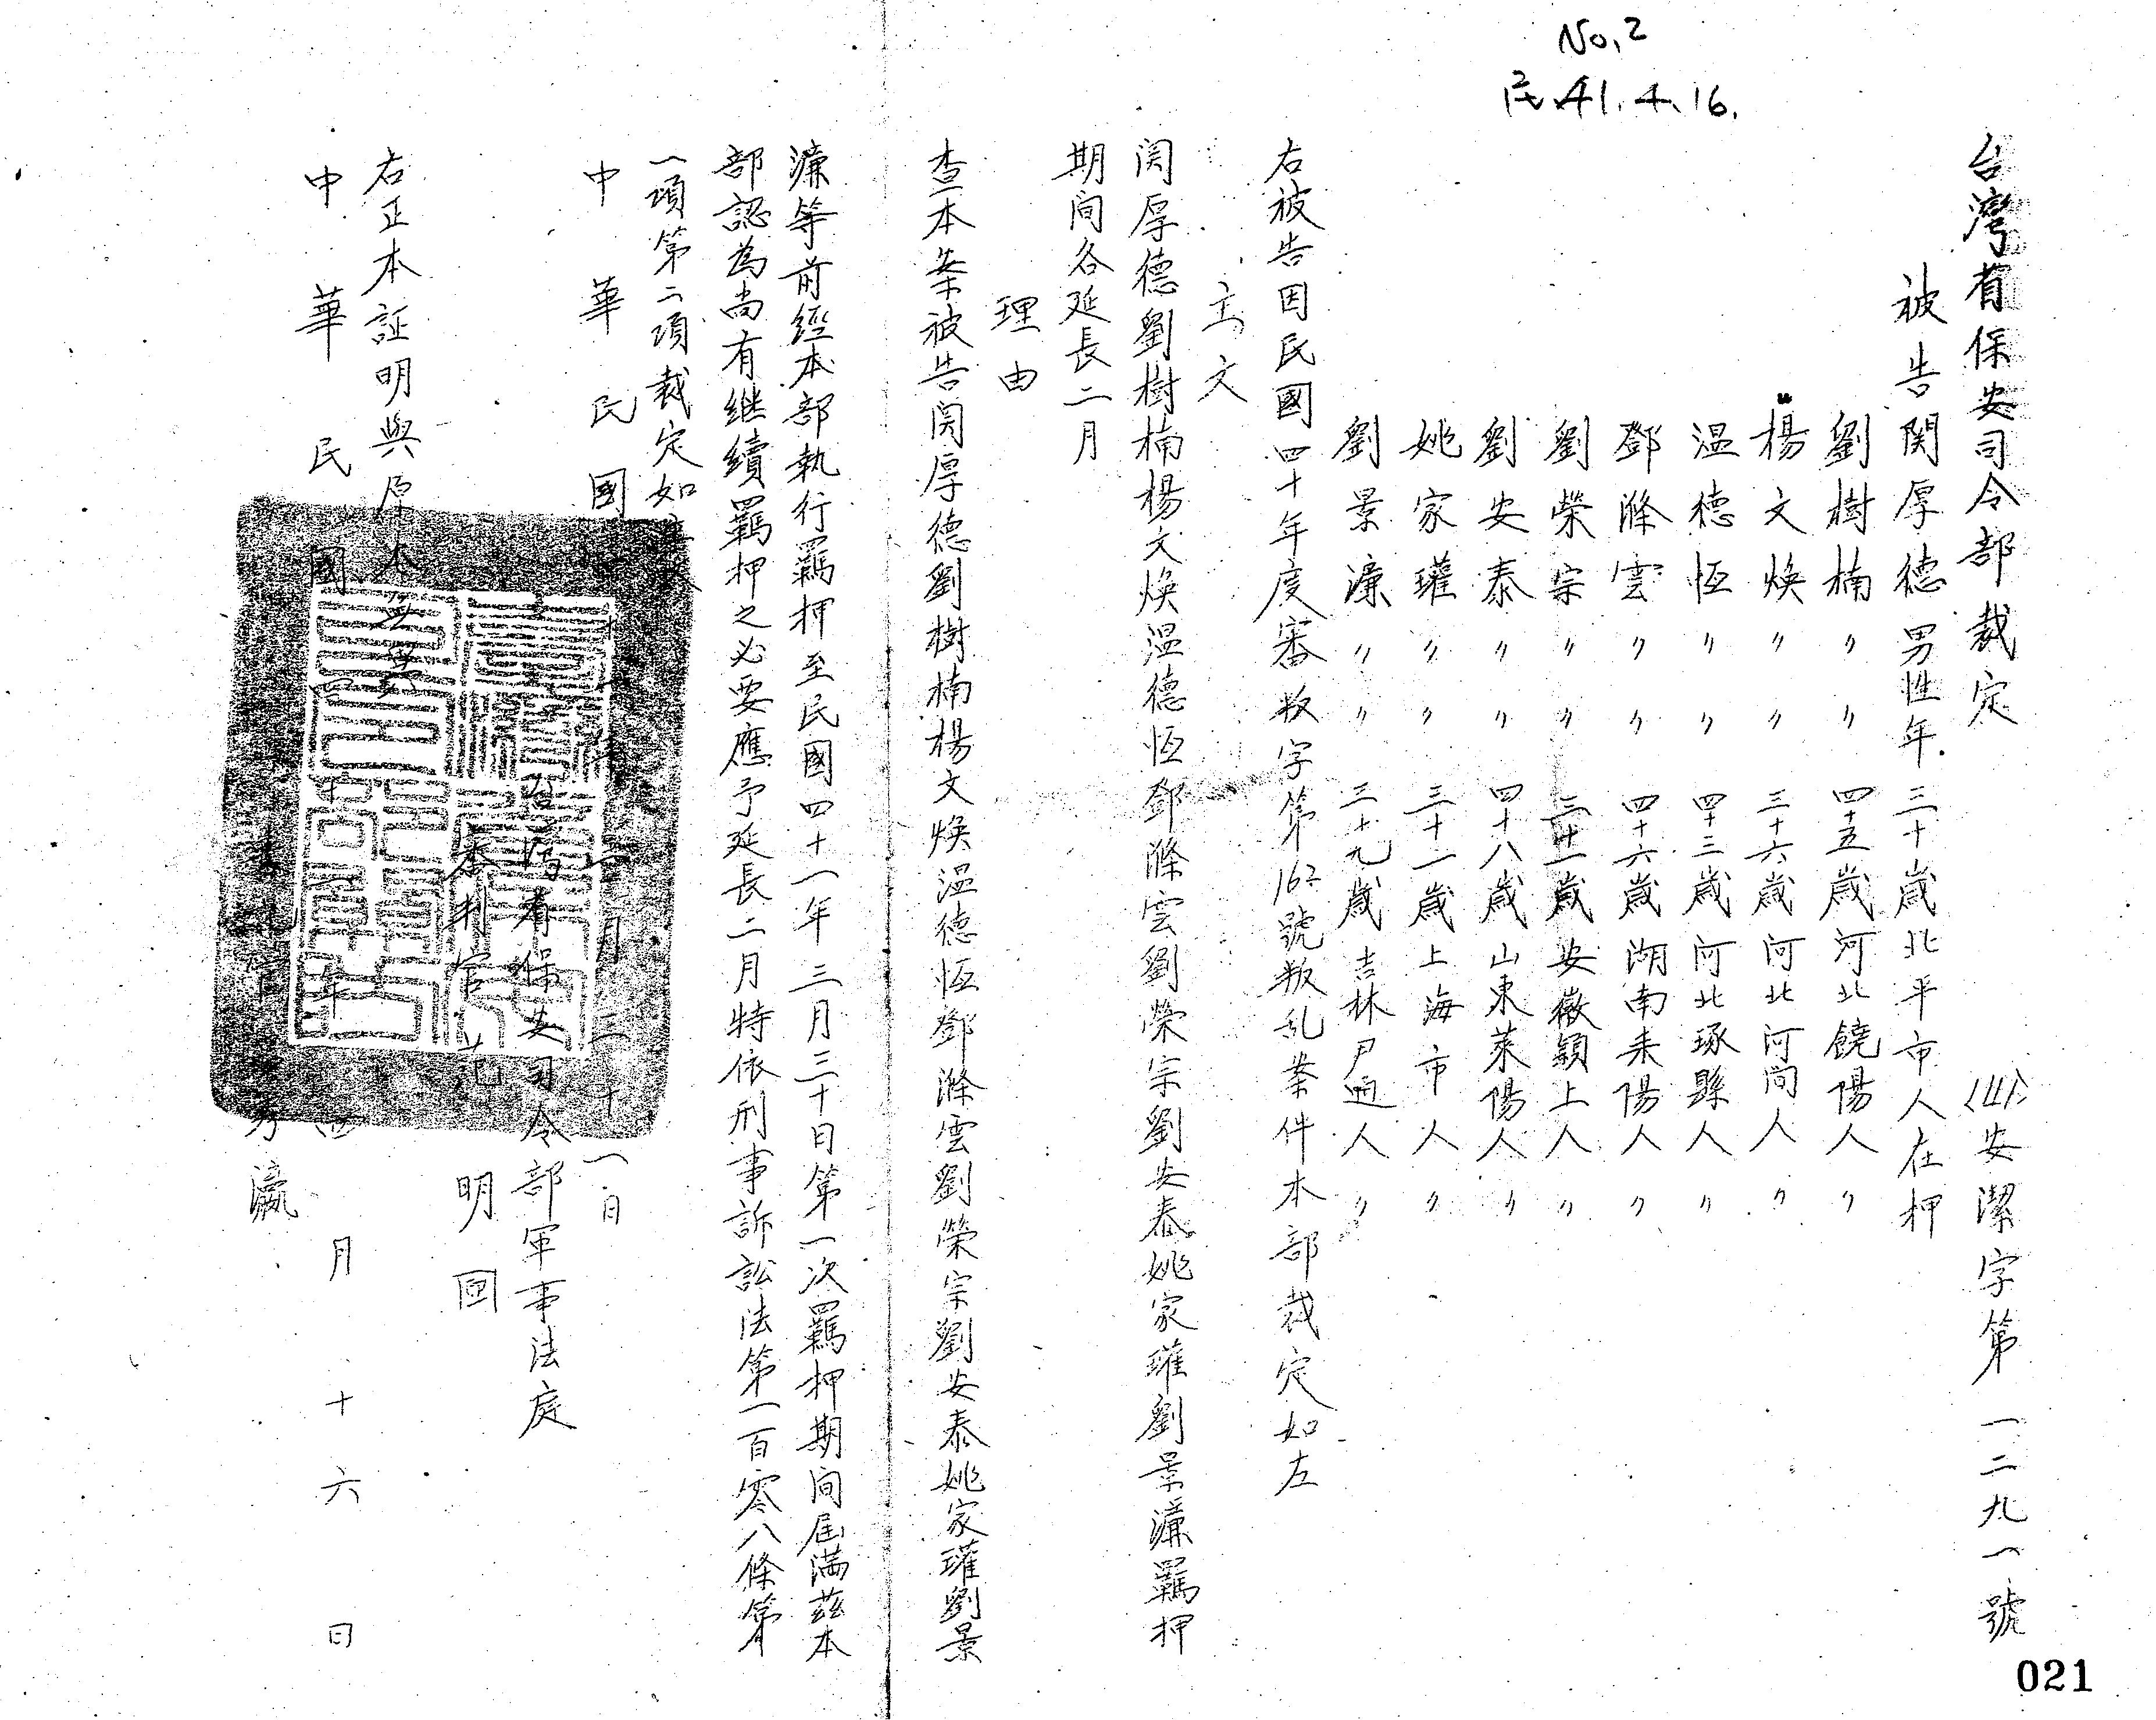 No.2
民41.4.16.
台灣省保安司令部裁定 (41)安潔字第一二九一號
被告 関厚德 男性年 三十歲 北平市人 在押
劉樹楠 〃 〃 四十五歲 河北饒陽人 〃
楊文煥 〃 〃 三十六歲 河北河间人 〃
温德恒 〃 〃 四十三歲 河北琢縣人 〃
鄧滌雲 〃 〃 四十六歲 湖南耒陽人 〃
劉榮宗 〃 〃 三十一歲 安徽潁上人 〃
劉安泰 〃 〃 四十八歲 山東萊陽人 〃
姚家瓘 〃 〃 三十一歲 上海市人 〃
劉景濂 〃 〃 三十九歲 吉林人 〃
右被告因民國四十年度審叛字第162號叛乱案件本部裁定如左
主文
関厚德劉樹楠楊文煥温德恒鄧滌雲劉榮宗劉安泰姚家瓘劉景濂羈押
期间各延長二月
理由
查本案被告関厚德劉樹楠楊文煥温德恒鄧滌雲劉榮宗劉安泰姚家瓘劉景
濂等前經本部執行羈押至民國四十一年三月三十日第一次羈押期间屆满茲本
部認為尚有继續羈押之必要應予延長二月特依刑事訴訟法第一百零八條第
一項第二項裁定如主文
中華民國四十一年三月三十一日
台灣省保安司令部軍事法庭
審判官 范明 囬
右正本証明與原本無異
中華民國四十一年四月十六日
書記官 瀛
021